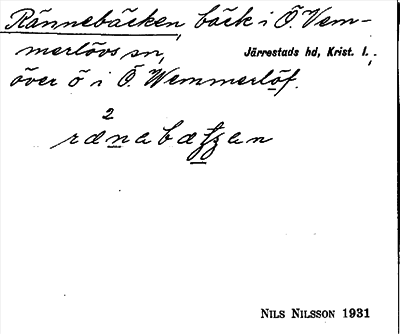 Rännebäcken, bäck i Ö. Vem-
merlövs sn, Järrestads hd, Krist. l.,
över ö i Ö. Wemmerlöf.
2
rænabætʒan
NILS NILSSON 1931